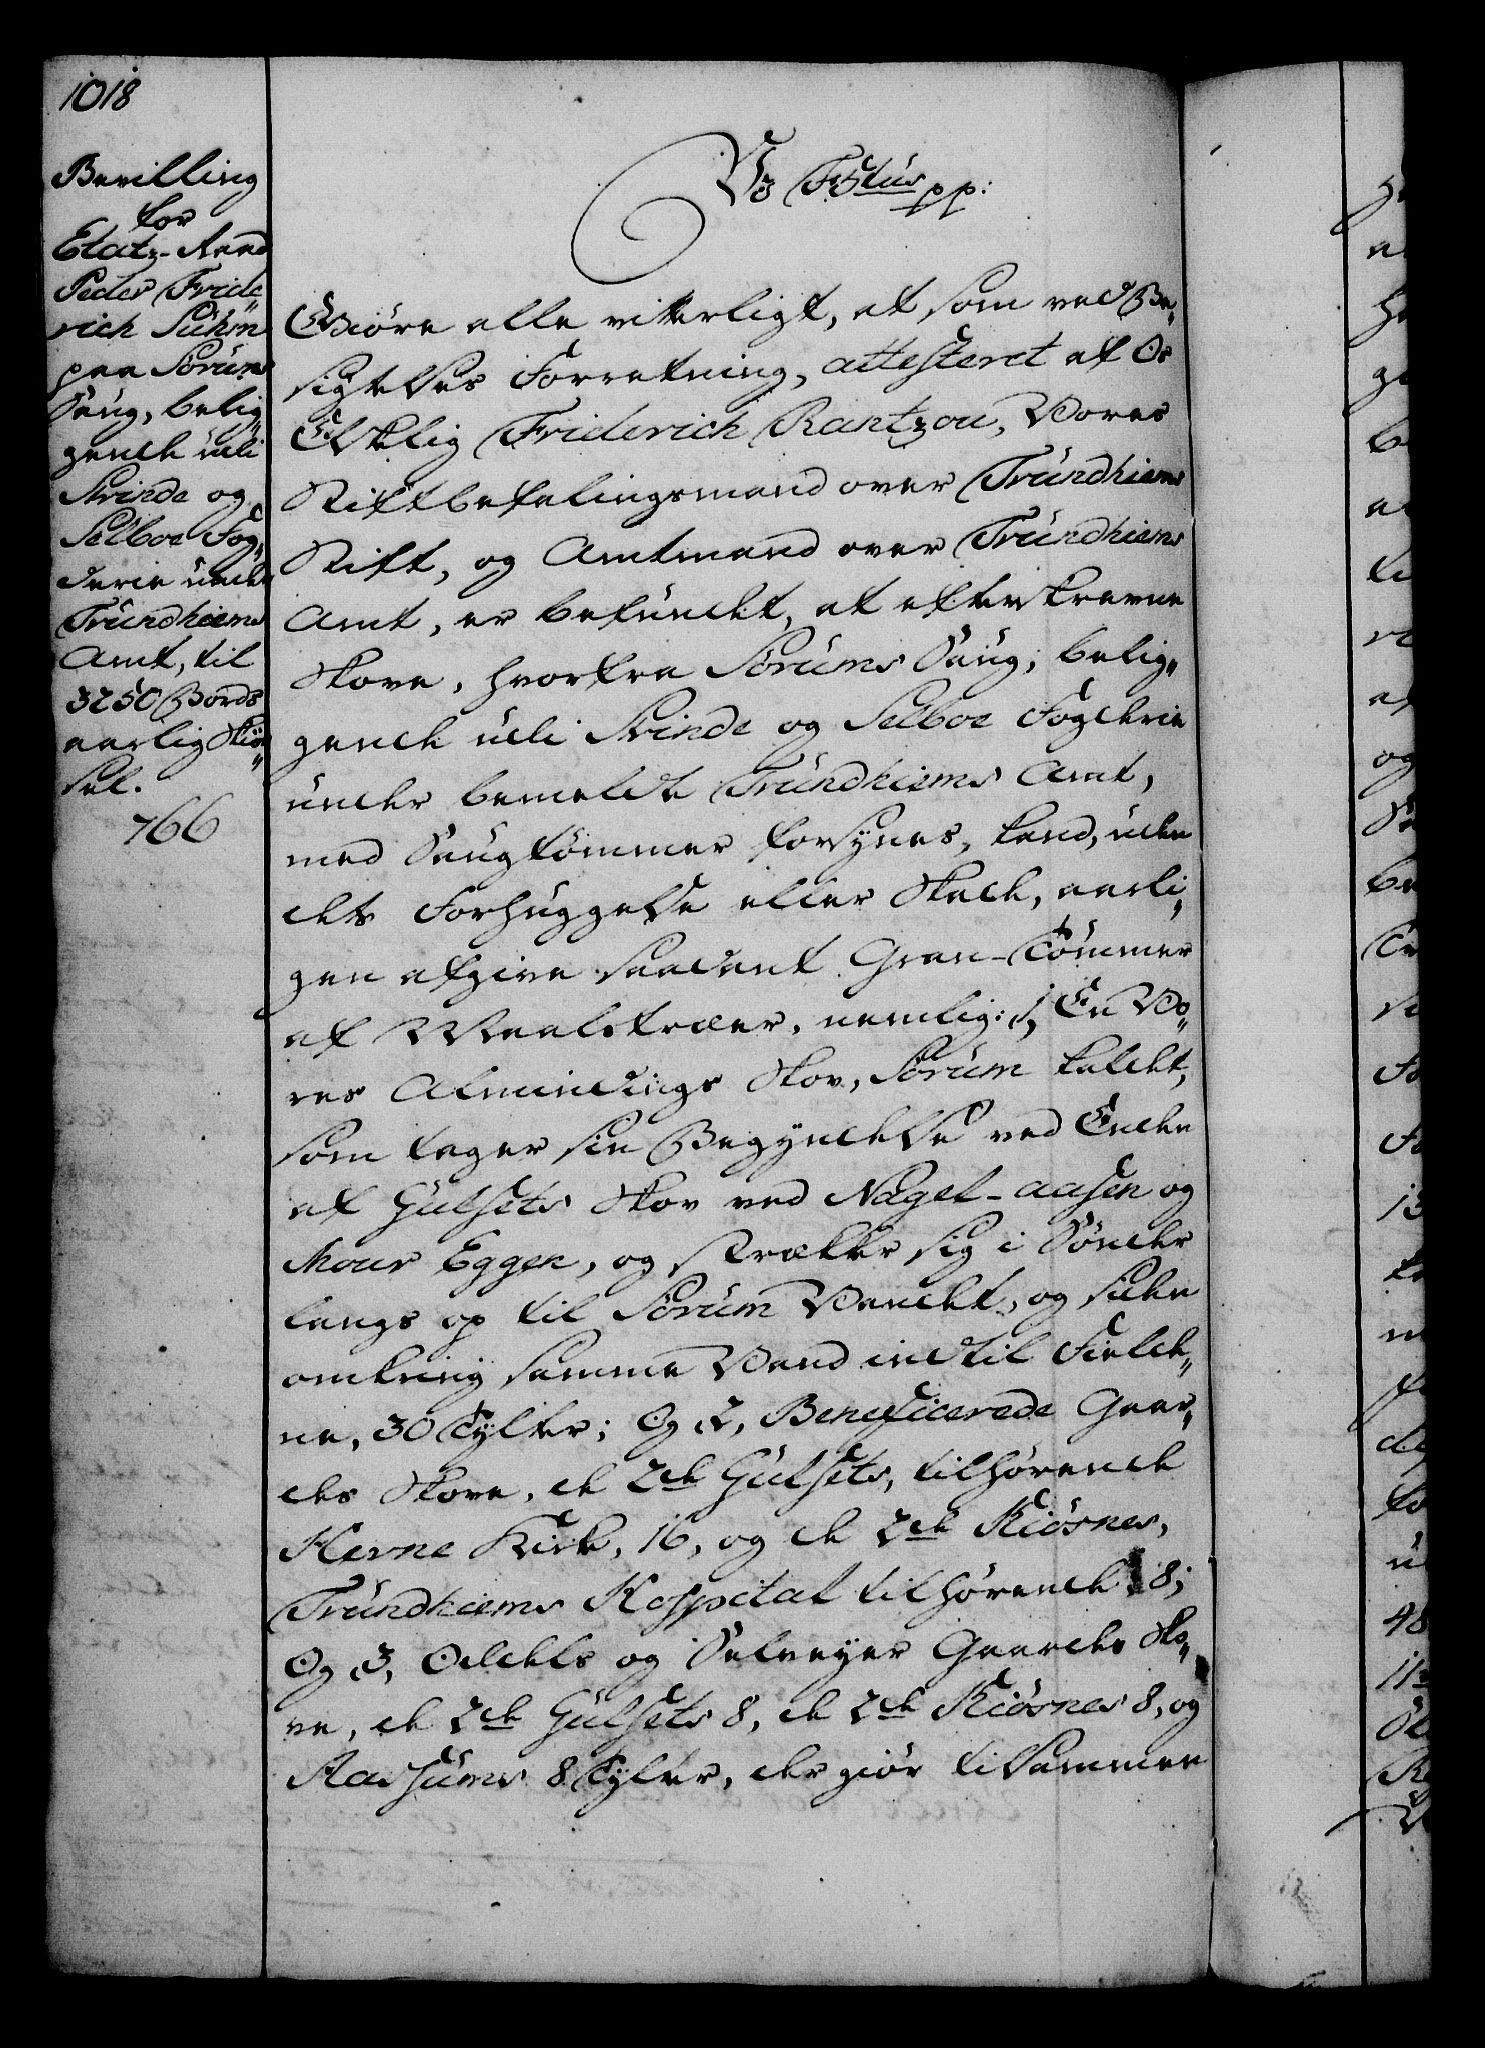 1018
Bevilling
for
Etatz-Raad
Peder Fride„
rich Suhm
paa Sörums
Saug, belig„
gende udi
Strinde og
Selboe Fog„
derie under
Trundhiems
Amt, til
3250 Bords
aarlig Skiæ„
sel.
766
Vs F 5tus pp:
Giöre alle vitterligt, at som ved Be„
sigtelses Forretning, attesteret af Os
Elskelig Friderich Rantzou, Vores
Stiftbefalingsmand over Trundhiems
Stift, og Amtmand over Trundhiems
Amt, er befundet, at efterskrevne
Skove, hvorfra Sörums Saug, belig„
gende udi Strinde og Selboe Fogderie
under bemeldte Trundhiems Amt,
med Saugtömmer forsynes, kand, uden
dets Forhuggelse eller Skade, aarli„
gen afgive saadant Gran-Tömmer
af Maalstræer, nemlig: 1, En Vo„
res Almindings Skov, Sörum kaldet,
som tager sin Begyndelse ved Enden
af Gulsets Skov ved Nagel-aasen og
Mour Eggen, og strækker sig i Sönder
langs op til Sörum Vandet, og siden
omkring samme Vand ind til Fielde„
ne, 30 Tylter; Og 2, Beneficerede Gaar„
des Skove, de 2de Gulsets, tilhörende
Hevne Kirke, 16, og de 2de Kiösnes,
Trundhiems Hospital tilhörende, 8;
Og 3, Odels og Selveyer Gaardes Sko„
ve, de 2de Gulsets 8, de 2de Kiösnes 8, og
Aashums 8 Tylter, der giör tilsammen